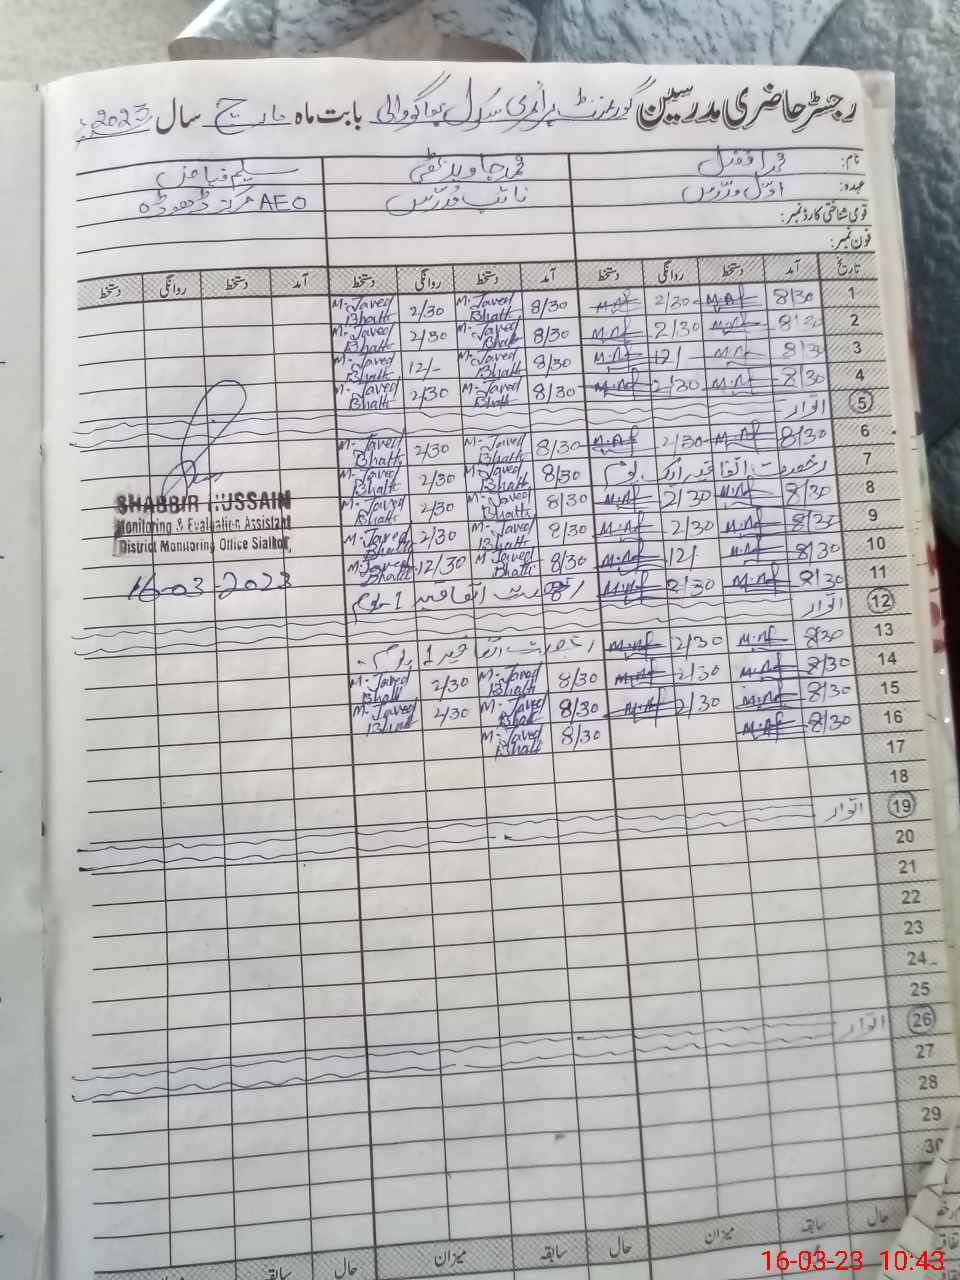 رجسٹر حاضری مدرسین گورنمنٹ پرائمری سکول بھاگووالی بابت ماہ مارچ سال 2023ء
نام: محمد افضل محمد جاوید بھٹی سلیم فیاض
عہدہ: اول مدرس نائب مدرس AEO مرکز
قومی شناختی کارڈ نمبر:
فون نمبر:
تاریخ آمد دستخط روانگی دستخط آمد دستخط روانگی دستخط آمد دستخط روانگی دستخط
1 8/30 M.Af 2/30 M.Af 8/30 M.Javed Bhatti 2/30 M.Javed Bhatti
2 8/30 M.Af 2/30 M.Af 8/30 M.Javed Bhatti 2/30 M.Javed Bhatti
3 8/30 M.Af 12/ M.Af 8/30 M.Javed Bhatti 12/- M.Javed Bhatti
4 8/30 M.Af 2/30 M.Af 8/30 M.Javed Bhatti 2/30 M.Javed Bhatti
5 اتوار
6 8/30 M.Af 2/30 M.Af 8/30 M.Javed Bhatti 2/30 M.Javed Bhatti
7 رخصت اتفاقیہ ایک یوم 8/30 M.Javed Bhatti 2/30 M.Javed Bhatti
8 8/30 M.Af 2/30 M.Af 8/30 M.Javed Bhatti 2/30 M.Javed Bhatti
9 8/30 M.Af 2/30 M.Af 8/30 M.Javed Bhatti 2/30 M.Javed Bhatti
10 8/30 M.Af 12/ M.Af 8/30 M.Javed Bhatti 12/30 M.Javed Bhatti
11 8/30 M.Af 2/30 M.Af رخصت اتفاقیہ 1 یوم
12 اتوار
13 8/30 M.Af 2/30 M.Af رخصت اتفاقیہ 1 یوم
14 8/30 M.Af 2/30 M.Af 8/30 M.Javed Bhatti 2/30 M.Javed Bhatti
15 8/30 M.Af 2/30 M.Af 8/30 M.Javed Bhatti 2/30 M.Javed Bhatti
16 8/30 M.Af 8/30 M.Javed Bhatti
17
18
19 اتوار
20
21
22
23
24
25
26 اتوار
27
28
29
30
SHABBIR HUSSAIN
Monitoring & Evaluation Assistant
District Monitoring Office Sialkot
16-03-2023
حال سابقہ میزان حال سابقہ میزان حال سابقہ میزان
16-03-23 10:43